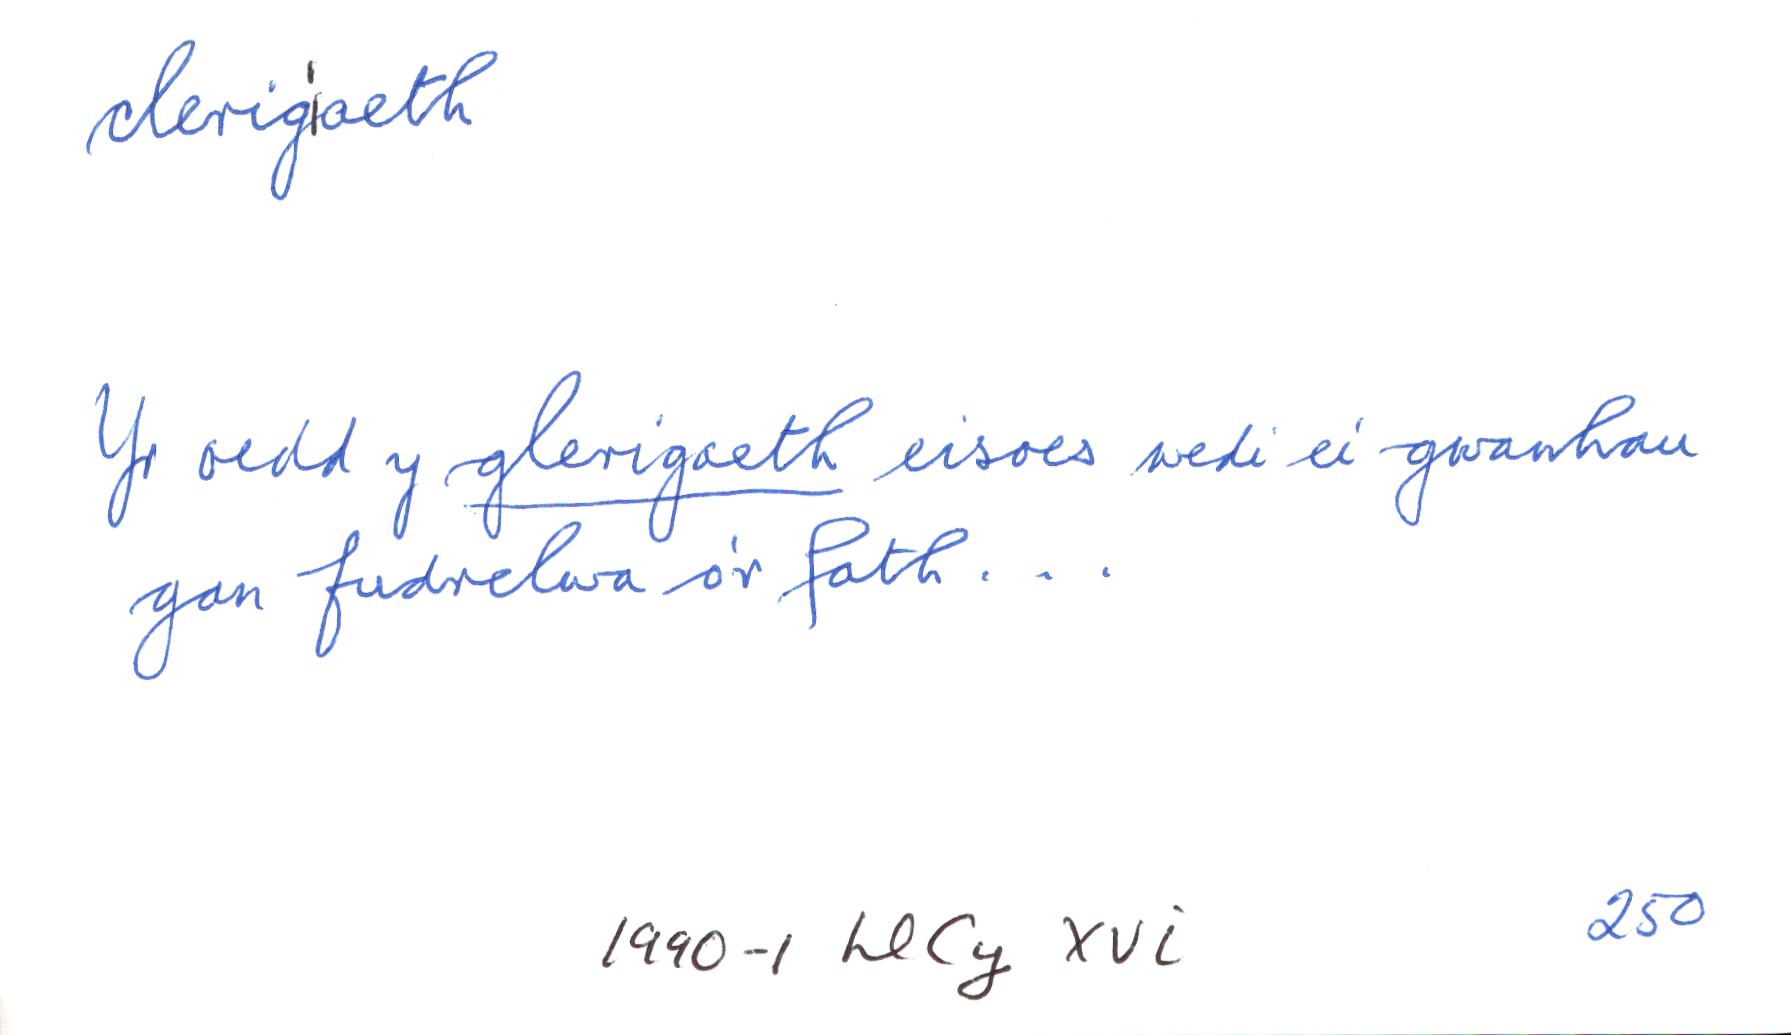 clerig¦aeth
Yr oedd y glerigaeth eisoes wedi ei gwanhau
gan fudrelwa o'r fath . . .
250
1990-1 LlCy XVi